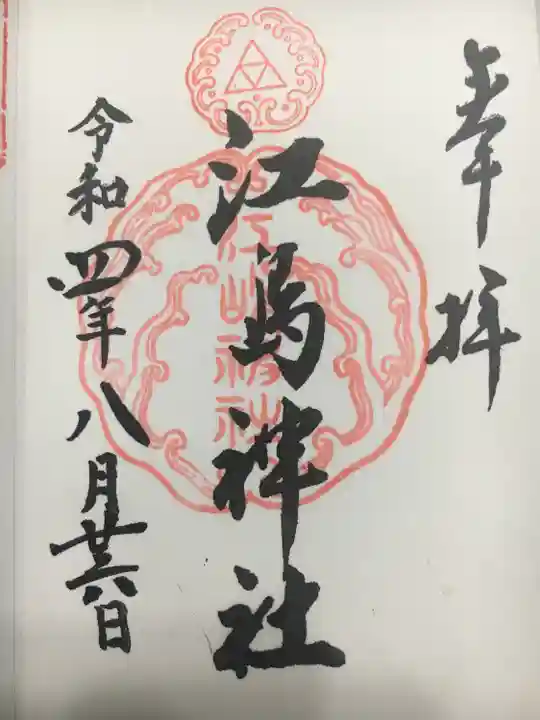 奉拝
江島神社
江島神社
令和四年八月廿六日